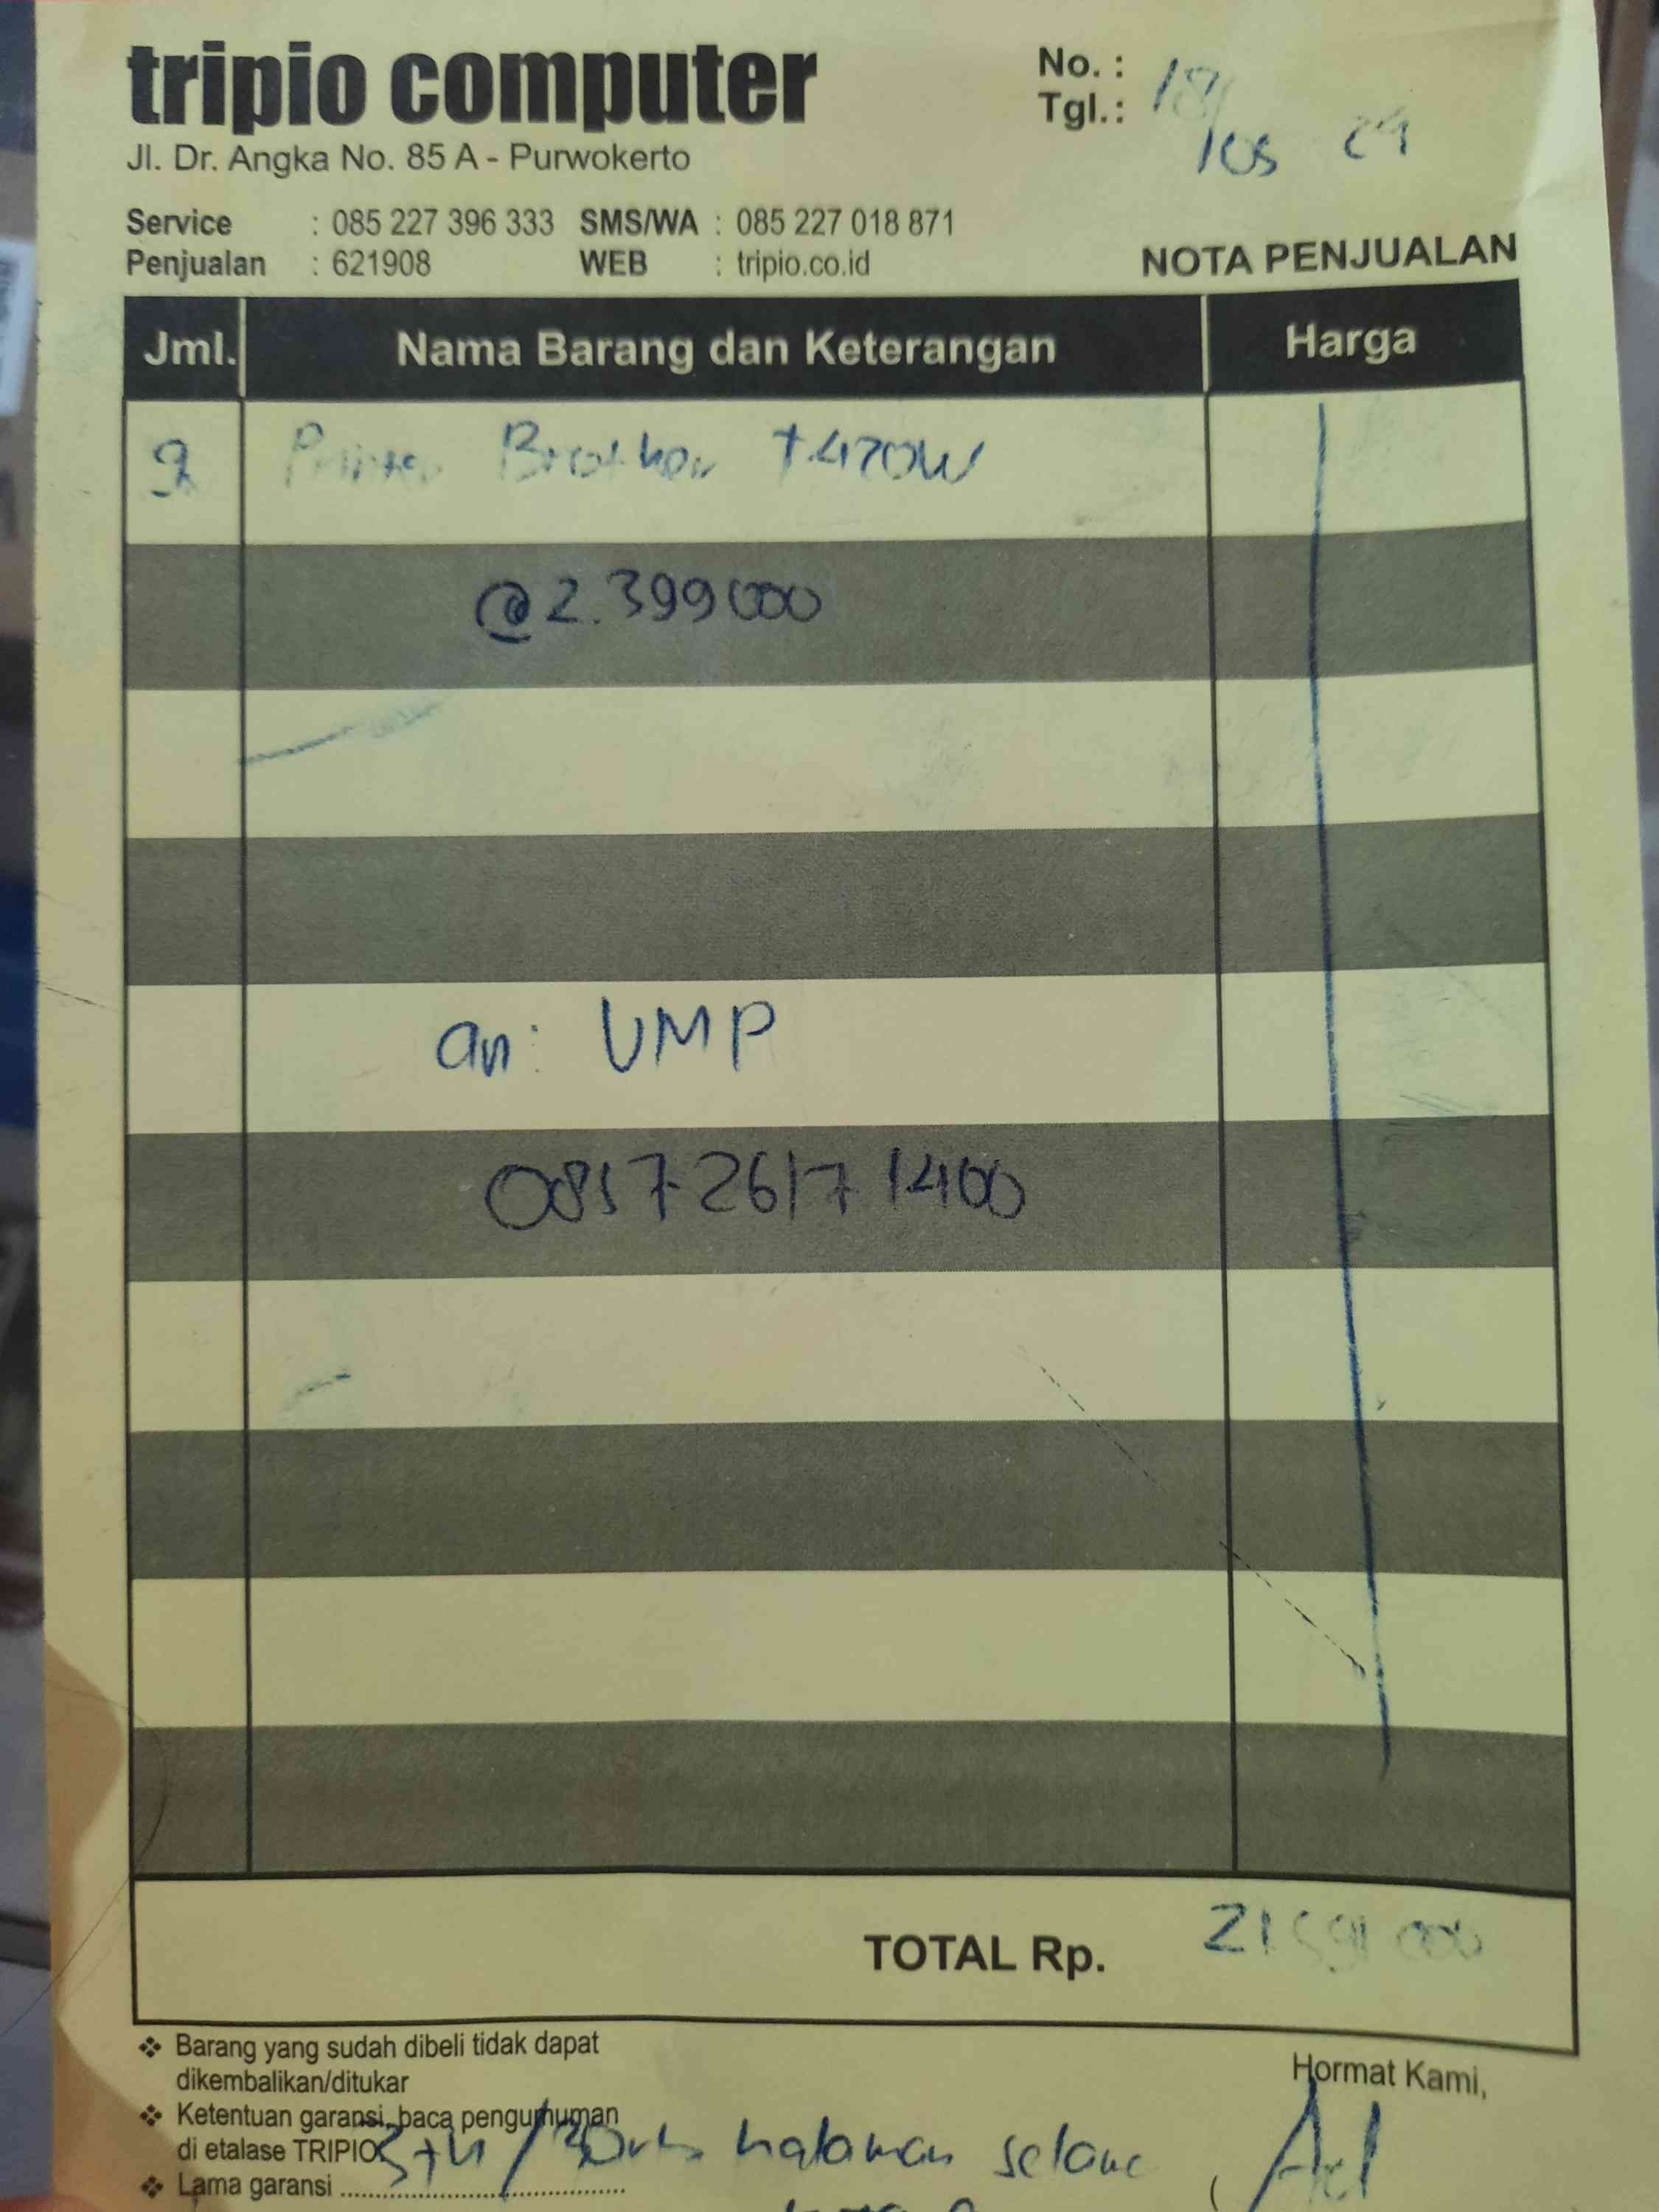 tripio computer
Jl. Dr. Angka No. 85 A - Purwokerto
No. :
Tgl. : 18/
/05 24
Service : 085 227 396 333 SMS/WA : 085 227 018 871
Penjualan : 621908 WEB : tripio.co.id
NOTA PENJUALAN
Jml. Nama Barang dan Keterangan Harga
9 Printer Brother T420W
@2.399000
an: UMP
085726171400
TOTAL Rp. 21591000
❖ Barang yang sudah dibeli tidak dapat
dikembalikan/ditukar
❖ Ketentuan garansi, baca pengumuman
di etalase TRIPIO
❖ Lama garansi ..........
3th / halaman
Hormat Kami,